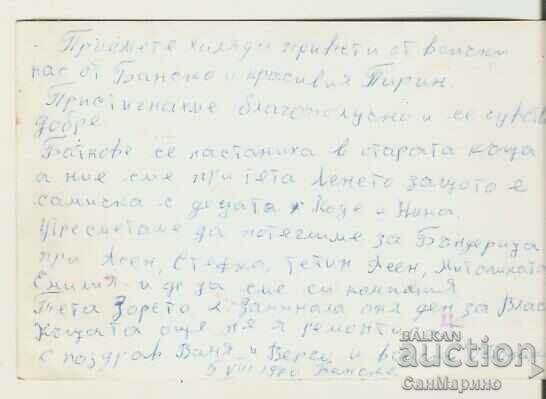 Приемете хиляди привети от всички
нас от Банско и красивия Пирин.
Пристигнахме благополучно и се чувств
добре.
Баткове се настаниха в старата къща
а ние сме при тета Ленето защото е
самичка с децата Козе и Нина.
Пресметаме да потеглиме за Бандерица
при Асен, Стефка, тетин Асен,
Емилия и де да сме си компания
Тета Зорето е заминала оня ден за Влас
Къщата още не я ремонти
с поздрав Ваня и Верчо и
5 VIII 1980 Банско
BALKAN
auction
СанМарино